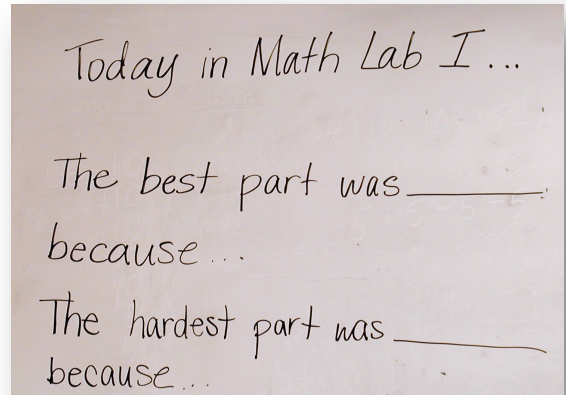 Today in Math Lab I...
The best part was______
because...
The hardest part was______
because...